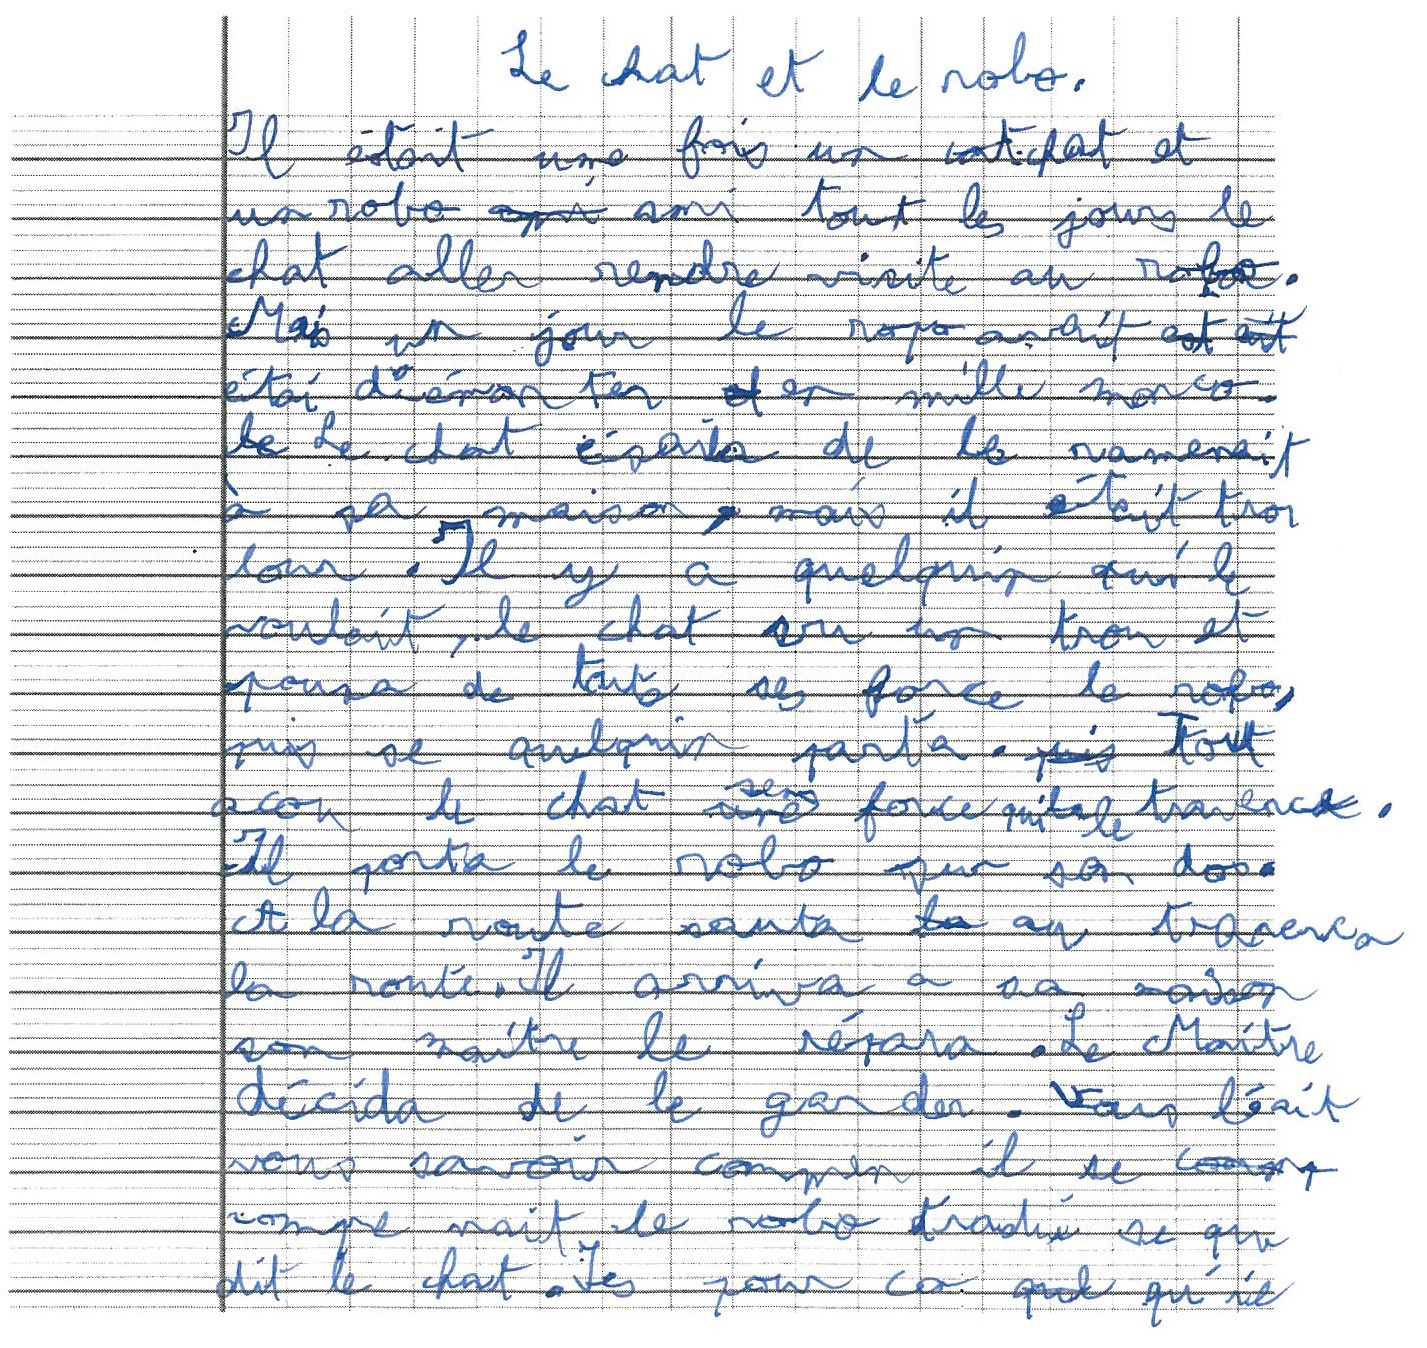 Le chat et le robo.
Il était une fois un chat et
un robo ami tout les jours le
chat aller rendre visite au robo.
Mais un jour le ropo avait
étai diémonter en mille morco.
Le chat éseilla de le ramenait
à sa maison, mais il était trop
lour. Il y a quelquin qui le
voulait, le chat vu un trou et
pousa de touts ses force le robo,
puis se quelquin parta. Tout
acou le chat sens force quita le traverce.
Il porta le robo sur son dos.
A la route sauta au traverca
la route. Il arriva a sa maison
son maître le répara. Le Maître
décida de le garder. Vous l'éait
vous savoir commen il se
compre nait le robo tradui se que
dit le chat. Ies pour ca qu'ile